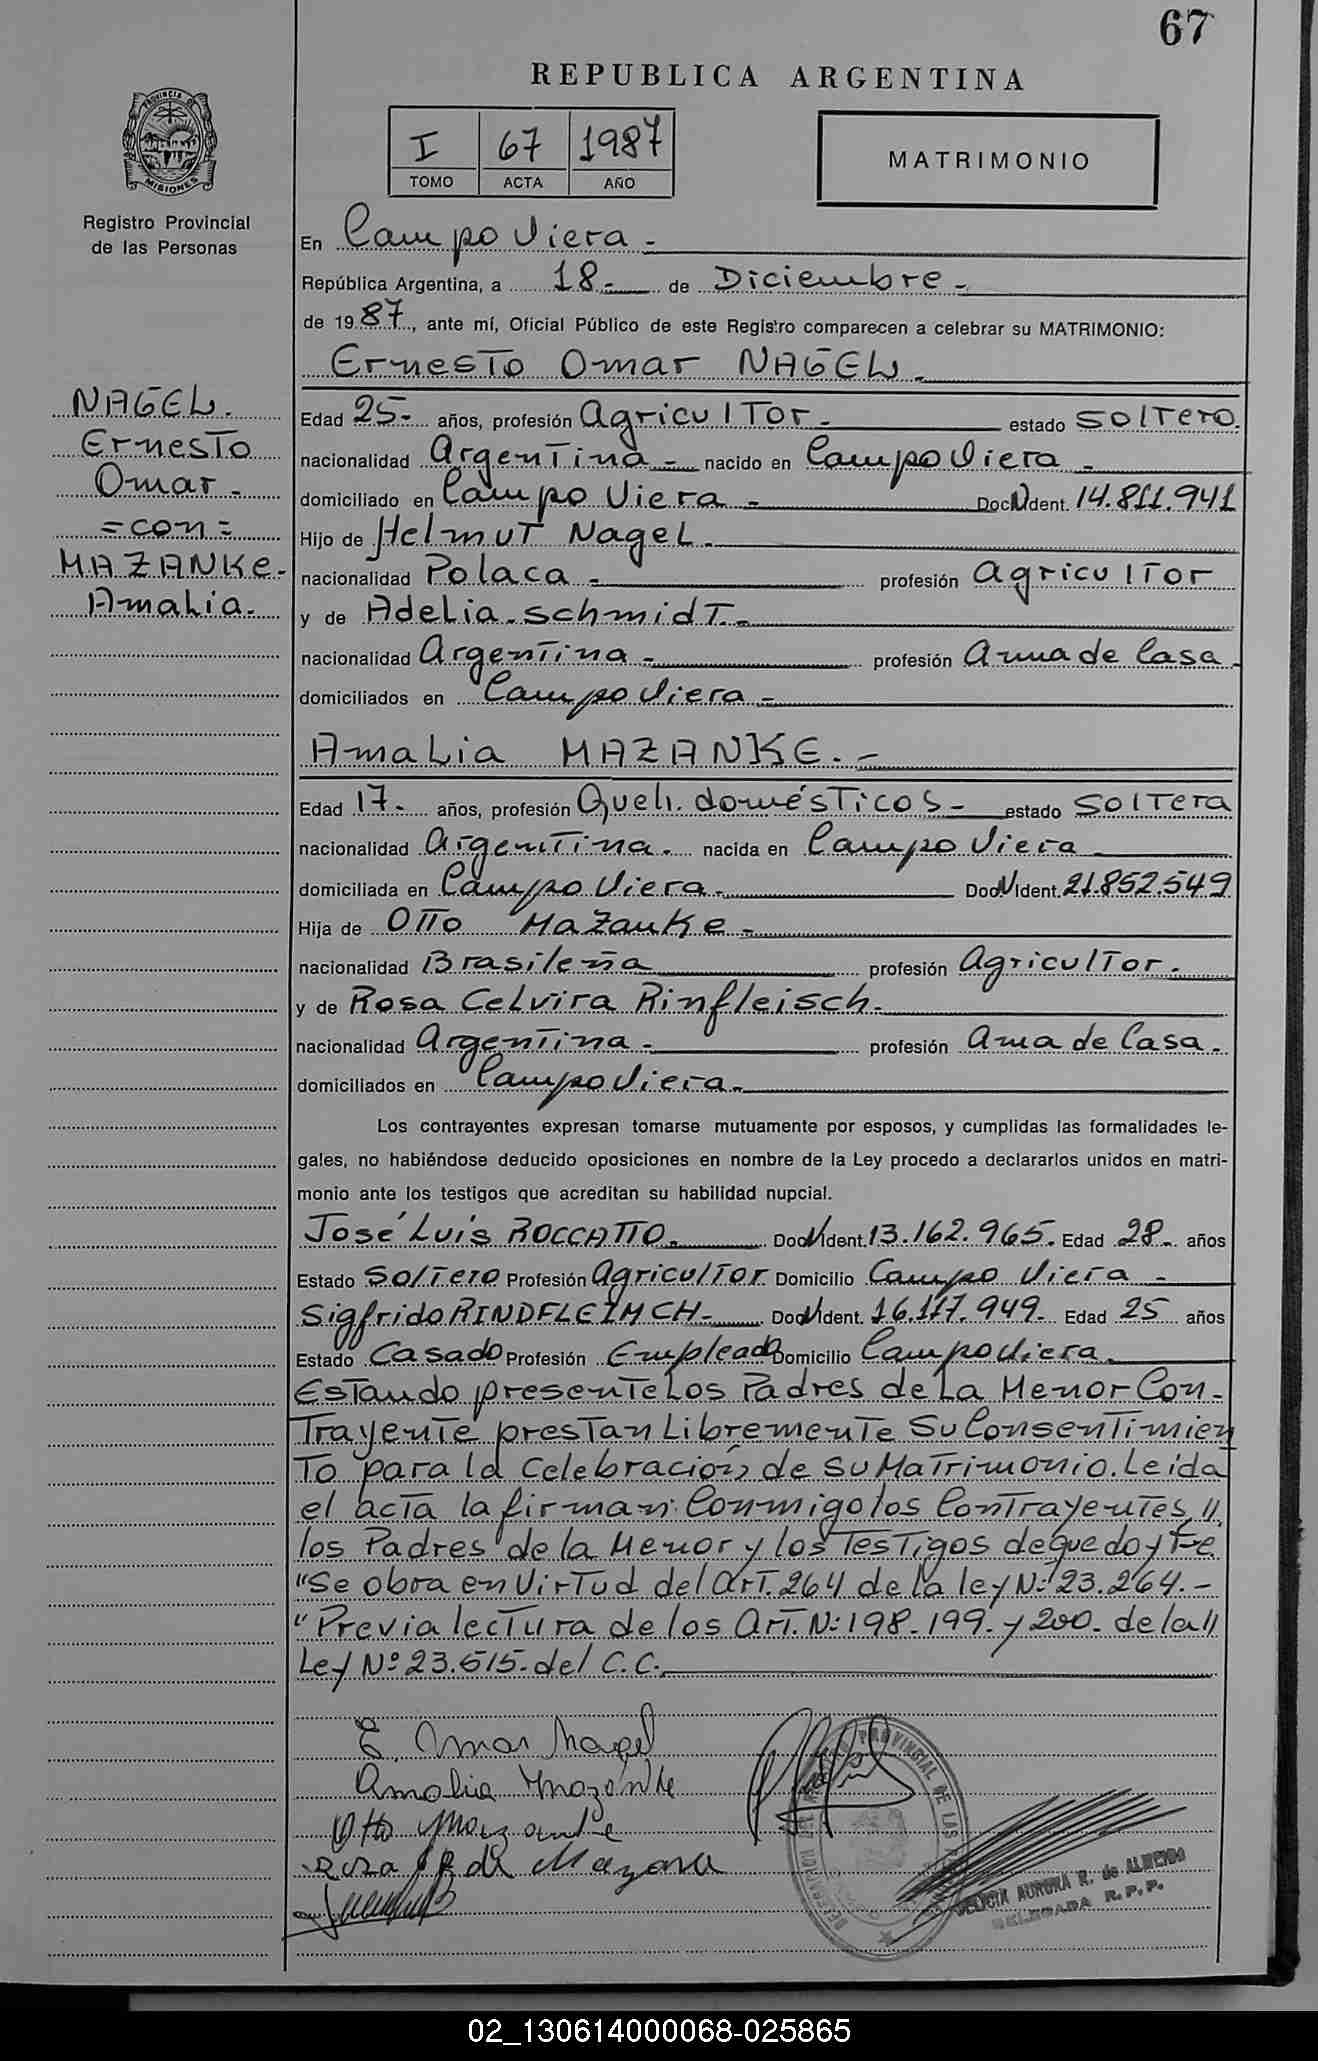 67
REPUBLICA ARGENTINA
PROVINCIA DE
MISIONES
Registro Provincial
de las Personas
I 67 1987
TOMO ACTA AÑO
MATRIMONIO
En Campo Viera -
República Argentina, a 18- de Diciembre -
de 1987, ante mí, Oficial Público de este Registro comparecen a celebrar su MATRIMONIO:
Ernesto Omar NAGEL.
NAGEL.
Ernesto
Omar -
= con =
MAZANKE.
Amalia.
Edad 25- años, profesión Agricultor - estado soltero.
nacionalidad Argentina - nacido en Campo Viera -
domiciliado en Campo Viera - Doc N Ident. 14.811.941
Hijo de Helmut Nagel.
nacionalidad Polaca - profesión Agricultor
y de Adelia Schmidt.-
nacionalidad Argentina - profesión Ama de Casa.
domiciliados en Campo Viera -
Amalia MAZANKE. -
Edad 17- años, profesión Queh. domésticos - estado soltera
nacionalidad Argentina. nacida en Campo Viera
domiciliada en Campo Viera. Doc N Ident. 21.852.549
Hija de Otto Mazanke -
nacionalidad Brasileña profesión Agricultor.
y de Rosa Celvira Rinfleisch.
nacionalidad Argentina - profesión Ama de Casa.
domiciliados en Campo Viera.
Los contrayentes expresan tomarse mutuamente por esposos, y cumplidas las formalidades le-
gales, no habiéndose deducido oposiciones en nombre de la Ley procedo a declararlos unidos en matri-
monio ante los testigos que acreditan su habilidad nupcial.
José Luis ROCCATTO. Doc N Ident. 13.162.965. Edad 28- años
Estado Soltero Profesión Agricultor Domicilio Campo Viera -
Sigfrido Doc N Ident. 16.117.949- Edad 25 años
Estado Casado Profesión Empleado Domicilio Campo Viera.
Estando presente Los Padres de La Menor Con-
Trayente prestan Libremente Su Consentimien
To para la Celebración de su Matrimonio. Leida
el acta la firman: Conmigo los Contrayentes, //
los Padres de la Menor y los Testigos de que doy Fe.
"Se obra en Virtud del Art. 264 de la ley N: 23.264.-
"Previa lectura de los Art. N: 198-199- y 200- de la //
Ley Nº 23.515- del C.C.
E. Omar Nagel
Amalia Mazanke
Otto Mazanke
Rosa R de Mazanke
PROVINCIAL DE LAS
FELICIA AURORA R. de ALMEIDA
DELEGADA R. P. P.
02_130614000068-025865